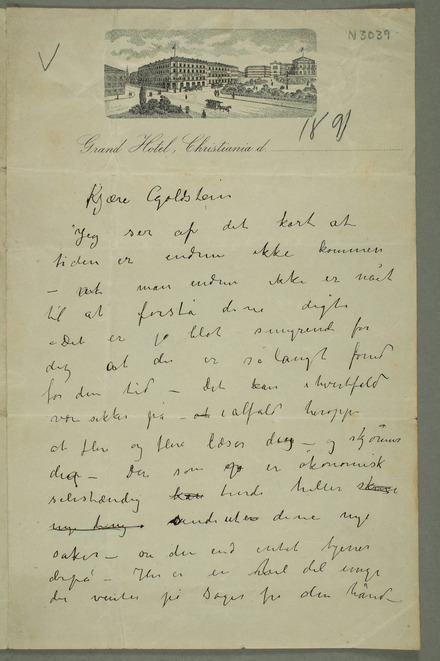 N3039
Grand Hotel, Christiania d
1891
Kjære Goldstein
Jeg ser af dit kort at
tiden er endnu ikke kommen
– at man endnu ikke er nået
til at forstå dine digte
– Det er jo blot smigrende for
dig at du er så langt forud
for din tid – Det kan ihvertfald
være sikker på – at ialfald heroppe
at flere og flere læser dig – og skjønner
dig – Du som er økonomisk
selvstændig burde heller
sende ut dine nye
saker – om du end intet tjener
derpå – Her er en hel del unge
der venter på noget fra din hånd